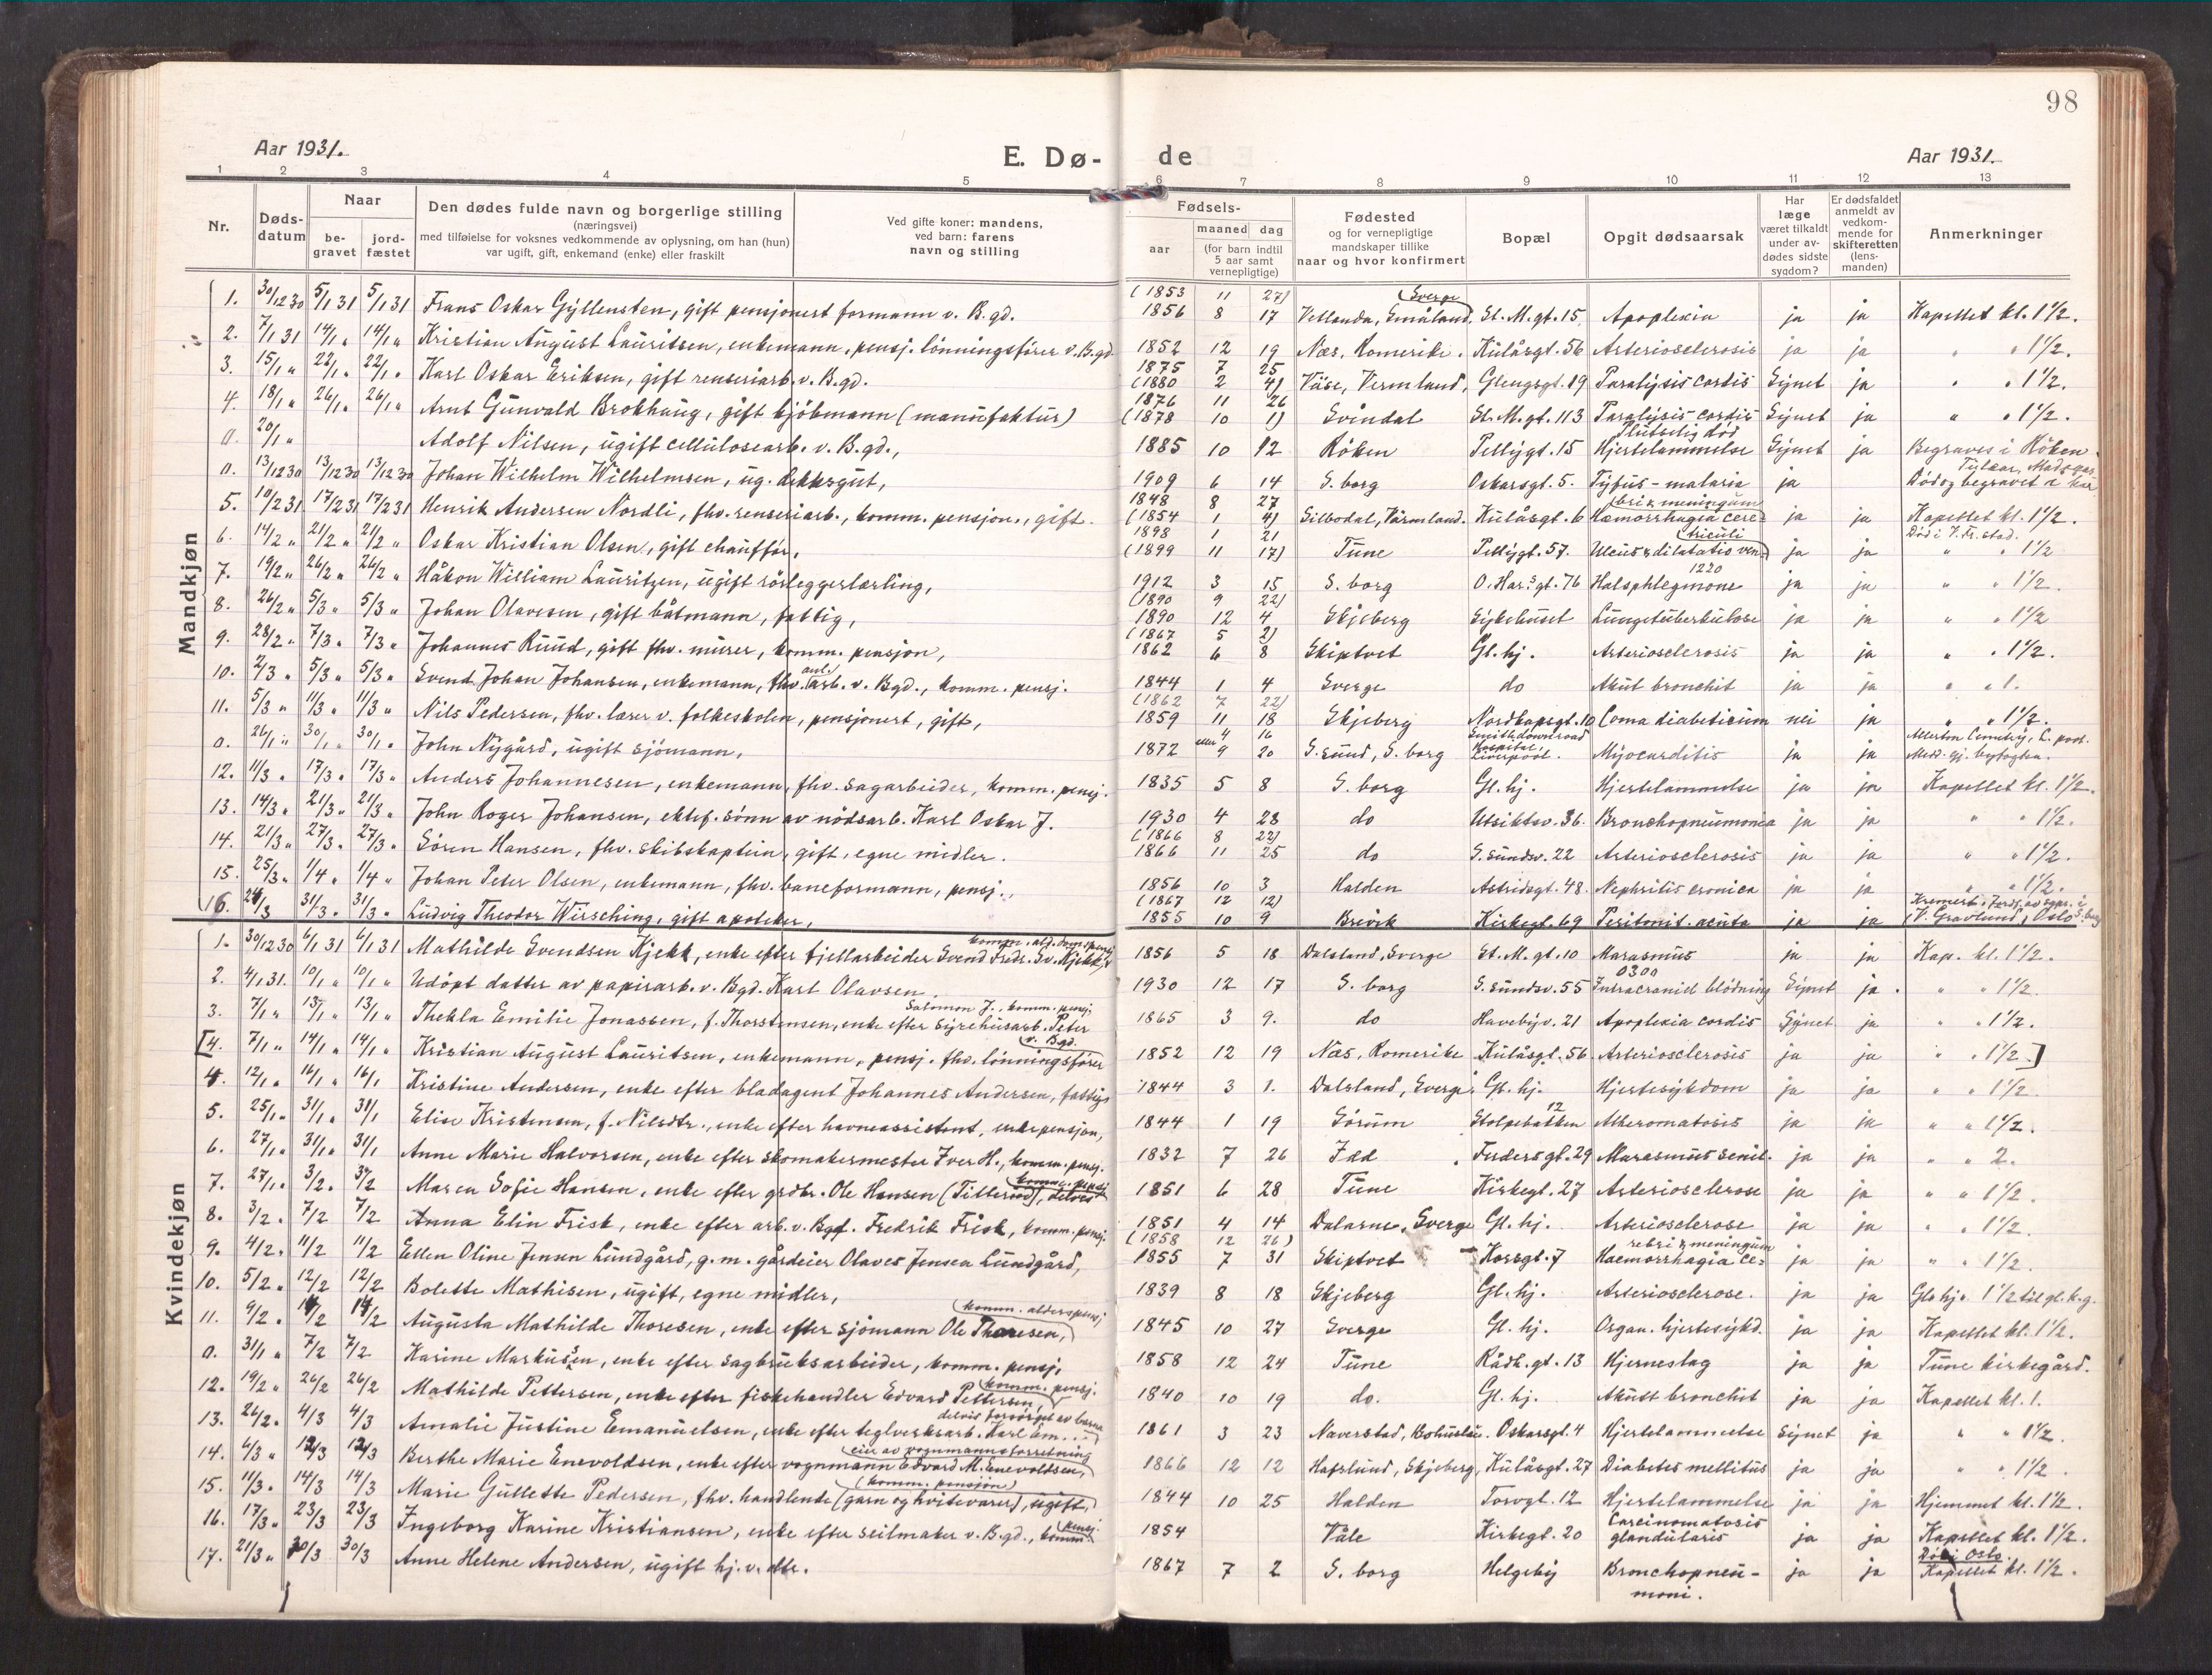 98
Aar 1931.
E. Dø- de
Aar 1931.
1 2 3 4 5 6 7 8 9 10 11 12 13
Nr.
Døds-
datum
Naar
be-
gravet
jord-
fæstet
Den dødes fulde navn og borgerlige stilling
(næringsvei)
med tilføielse for voksnes vedkommende av oplysning, om han (hun)
var ugift, gift, enkemand (enke) eller fraskilt
Ved gifte koner: mandens,
ved barn: farens
navn og stilling
Fødsels-
aar
maaned dag
(for barn indtil
5 aar samt
vernepligtige)
Fødested
og for vernepligtige
mandskaper tillike
naar og hvor konfirmert
Bopæl
Opgit dødsaarsak
Har
læge
været tilkaldt
under av-
dødes sidste
sygdom?
Er dødsfaldet
anmeldt av
vedkom-
mende for
skifteretten
(lens-
manden)
Anmerkninger
Mandkjøn
(1853 11 27)
1. 30/12 30 5/1 31 5/1 31 Frans Oskar Gyllensten, gift pensjonert formann v. B.gd. 1856 8 17 Vetlanda, Småland, Sverge St. M. gt. 15 Apoplexia ja ja Kapellet kl. 1 1/2.
2. 7/1 31 14/1 " 14/1 " Kristian August Lauritsen, enkemann, pensj. lönningsförer v. B.gd. 1852 12 19 Næs, Romerike. Kulåsgt. 56 Arteriosclerosis ja ja " " 1 1/2.
3. 15/1 " 22/1 " 22/1 " Karl Oskar Eriksen, gift renseriarb. v. B.gd. 1875 7 25
(1880 2 4) Väse, Vermland, Glengsgt. 19 Paralysis cordis Synet ja " " 1 1/2.
4. 18/1 " 26/1 " 26/1 " Arnt Gunvald Brokhaug, gift kjöbmann (manufaktur) 1876 11 26
(1878 10 1) Svindal St. M. gt. 113 Paralysis cordis Synet ja " " 1 1/2.
0. 20/1 " Adolf Nilsen, ugift cellulosearb. v. B.gd., 1885 10 12 Röken Pellygt. 15 Plutselig död Hjertelammelse Synet ja Begraves i Röken
0. 13/12 30 13/12 30 13/12 30 Johan Wilhelm Wilhelmsen, ug. dekksgut, 1909 6 14 S. borg Oskarsgt. 5. Tyfus - malaria ja Död og begravet i
5. 10/2 31 17/2 31 17/2 31 Henrik Andersen Nordli, fhv. renseriarb., komm. pensjon., gift. 1848 8 27
(1854 1 4) Silbodal, Värmland. Kulåsgt. 6 Hæmorrhagia cere= bri & meningum ja ja Kapellet kl. 1 1/2.
6. 14/2 " 21/2 " 21/2 " Oskar Kristian Olsen, gift chauffør, 1898 1 21
(1899 11 17) Tune Pellygt. 57. Ulcus & dilatatio ven= triculi ja ja Död i V. Fr. stad. " " 1 1/2
7. 19/2 " 26/2 " 26/2 " Håkon William Lauritzen, ugift rörleggerlærling, 1912 3 15 S. borg O. Har.s gt. 76 1220 Halsphlegmone ja ja " " 1 1/2.
8. 26/2 " 5/3 " 5/3 " Johan Olavesen, gift båtmann, fattig, (1890 9 22)
1890 12 4 Skjeberg Sykehuset Lungetuberkulose ja ja " " 1 1/2
9. 28/2 " 7/3 " 7/3 " Johannes Ruud, gift fhv. murer, komm. pensjon, (1867 5 2)
1862 6 8 Skiptvet Gl. hj. Arteriosclerosis ja ja " " 1 1/2.
10. 2/3 " 5/3 " 5/3 " Svend Johan Johansen, enkemann, fhv. anl. arb. v. Bgd., komm. pensj. 1844 1 4 Sverge do Akut bronchit ja ja " " 1.
11. 5/3 " 11/3 " 11/3 " Nils Pedersen, fhv. lærer v. folkeskolen, pensjonert, gift, (1862 7 22)
1859 11 18 Skjeberg Nordkapsgt. 10 Coma diabeticum nei ja " " 1 1/2.
0. 26/1 " 30/1 " 30/1 " John Nygård, ugift sjömann, 1872 eller 4 16 9 20 G. sund, S. borg Smithdownroad Hospital, Liverpool. Myocarditis ja ja Allerton Cemetry, L. pool.
12. 11/3 " 17/3 " 17/3 " Anders Johannesen, enkemann, fhv. sagarbeider, komm. pensj. 1835 5 8 S. borg Gl. hj. Hjertelammelse ja ja Kapellet kl. 1 1/2.
13. 14/3 " 21/3 " 21/3 " John Roger Johansen, ektef. sönn av nödsarb. Karl Oskar J. 1930 4 28 do Utsiktsv. 36. Bronchopneumonia ja ja " " 1 1/2.
14. 21/3 " 27/3 " 27/3 " Sören Hansen, fhv. skibskaptein, gift, egne midler. (1866 8 22)
1866 11 25 do G. sundsv. 22 Arteriosclerosis ja ja " " 1 1/2.
15. 25/3 " 1/4 " 1/4 " Johan Peter Olsen, enkemann, fhv. baneformann, pensj., 1856 10 3 Halden Astridsgt. 48. Nephritis cronica ja ja " " 1 1/2.
16. 24/3 31/3 " 31/3 " Ludvig Theodor Wirsching, gift apoteker, (1867 12 12)
1855 10 9 Brevik Kirkegt. 69 Peritonit. acuta ja ja V. Gravlund, Oslo
Kvindekjøn
1. 30/12 30 6/1 31 6/1 31 Mathilde Svendsen Kjekk, enke efter fjellarbeider Svend Fredr. Sv. Kjekk, 1856 5 18 Dalsland, Sverge St. M. gt. 10 Marasmus ja ja Kap. kl. 1 1/2.
2. 4/1 31. 10/1 " 10/1 " Udöpt datter av papirarb. v. Bgd. Karl Olavsen 1930 12 17 S. borg G. sundsv. 55 0300 Intracraniell blödning Synet ja " " 1 1/2.
3. 7/1 " 13/1 " 13/1 " Thekla Emilie Jonassen, f. Thorstensen, enke efter syrehusarb. Peter Salomon J., komm. pensj. 1865 3 9. do Havebyv. 21 Apoplexia cordis Synet ja " " 1 1/2.
[4. 7/1 " 14/1 " 14/1 " Kristian August Lauritsen, enkemann, pensj. fhv. lönningsförer v. Bgd. 1852 12 19 Næs, Romerike Kulåsgt. 56 Arteriosclerosis ja ja " " 1 1/2]
4. 12/1 " 16/1 " 16/1 Kristine Andersen, enke efter bladagent Johannes Andersen, fattig, 1844 3 1. Dalsland, Sverge Gl. hj. Hjertesykdom ja ja " " 1 1/2
5. 25/1 " 31/1 " 31/1 Elise Kristensen, f. Nilsdtr., enke efter havneassistent, enkepensjon, 1844 1 19 Sörum Stolpebakken 12 Atheromatosis ja ja " " 1 1/2.
6. 27/1 " 31/1 " 31/1 Anne Marie Halvorsen, enke efter skomakermester Iver H., komm. pensj. 1832 7 26 Id Festersgt. 29 Marasmus senil. ja ja " " 2.
7. 27/1 " 3/2 " 3/2 Maren Sofie Hansen, enke efter grdbr. Ole Hansen (Titterud), 1851 6 28 Tune Kirkegt. 27 Arteriosclerose ja ja " " 1 1/2.
8. 3/2 " 7/2 7/2 Anna Elin Frisk, enke efter arb. v. Bgd. Fredrik Frisk, komm. pensj. 1851 4 14 Dalarne, Sverge Gl. hj. Arteriosclerose ja ja " " 1 1/2.
9. 4/2 " 11/2 11/2 Ellen Oline Jensen Lundgård, g. m. gårdeier Olaves Jensen Lundgård, (1858 12 26)
1855 7 31 Skiptvet Korsgt. 7 Haemorrhagia ce= rebri & meningum ja ja " " 1 1/2.
10. 5/2 " 12/2 12/2 Bolette Mathisen, ugift, egne midler, 1839 8 18 Skjeberg Gl. hj. Arteriosclerose. ja ja Gl. hj. 1 1/2 til gl. k.g.
11. 9/2 " 14/2 14/2 Augusta Mathilde Thoresen, enke efter sjömann Ole Thoresen, komm. alderspensj 1845 10 27 Sverge Gl. hj. Organ. hjertesykd. ja ja Kapellet kl. 1 1/2.
0. 31/1 " 7/2 7/2 Karine Markusen, enke efter sagbruksarbeider, komm. pensj, 1858 12 24 Tune Rådh. gt. 13 Hjerneslag ja ja Tune kirkegård.
12. 19/2 " 26/2 26/2 Mathilde Pettersen, enke efter fiskehandler Edvard Pettersen, komm. pensj. 1840 10 19 do. Gl. hj. Akutt bronchit ja ja Kapellet kl. 1.
13. 26/2 " 4/3 4/3 Amalie Justine Emanuelsen, enke efter teglverksarb. Karl Em... delvis forsörget av barna 1861 3 23 Naverstad, Bohuslän. Oskarsgt. 4 Hjertelammelse Synet ja " " 1 1/2.
14. 6/3 " 12/3 12/3 Berthe Marie Enevoldsen, enke efter vognmann Edvard M. Enevoldsen, eier av vognmannsforretning 1866 12 12 Hafslund, Skjeberg, Kulåsgt. 27 Diabetes mellitus ja ja " " 1 1/2.
15. 11/3 " 14/3 14/3 Marie Gullette Pedersen, fhv. handlende (garn og hvitevarer), ugift, (komm. pensjon) 1844 10 25 Halden Torvgt. 12 Hjertelammelse ja ja Hjemmet kl. 1 1/2.
16. 17/3 " 23/3 23/3 Ingeborg Karine Kristiansen, enke efter seilmaker v. B.gd., komm. pensj. 1854 Våle Kirkegt. 20 Carcinomatosis glandularis ja ja Kapellet kl. 1 1/2.
17. 21/3 " 30/3 30/3 Anne Helene Andersen, ugift hj. v. dtr. 1867 7 2 S. borg Helgeby Bronchopneu-
moni. ja ja Död i Oslo. Kapellet kl. 1 1/2.